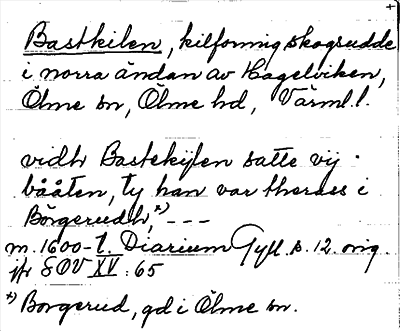 Bastkilen, kilformig skogsudde
i norra ändan av Hagelviken,
Ölme sn, Ölme hd, Värml. l.
vidh Bastekijlen satte vij
bååten, ty han var theras i
Börgerudh,ˣ⁾ - - -
m. 1600-t. Diarium Gyll. s. 12. orig.
jfr SOV XV: 65
ˣ⁾ Borgerud, gd i Ölme sn.